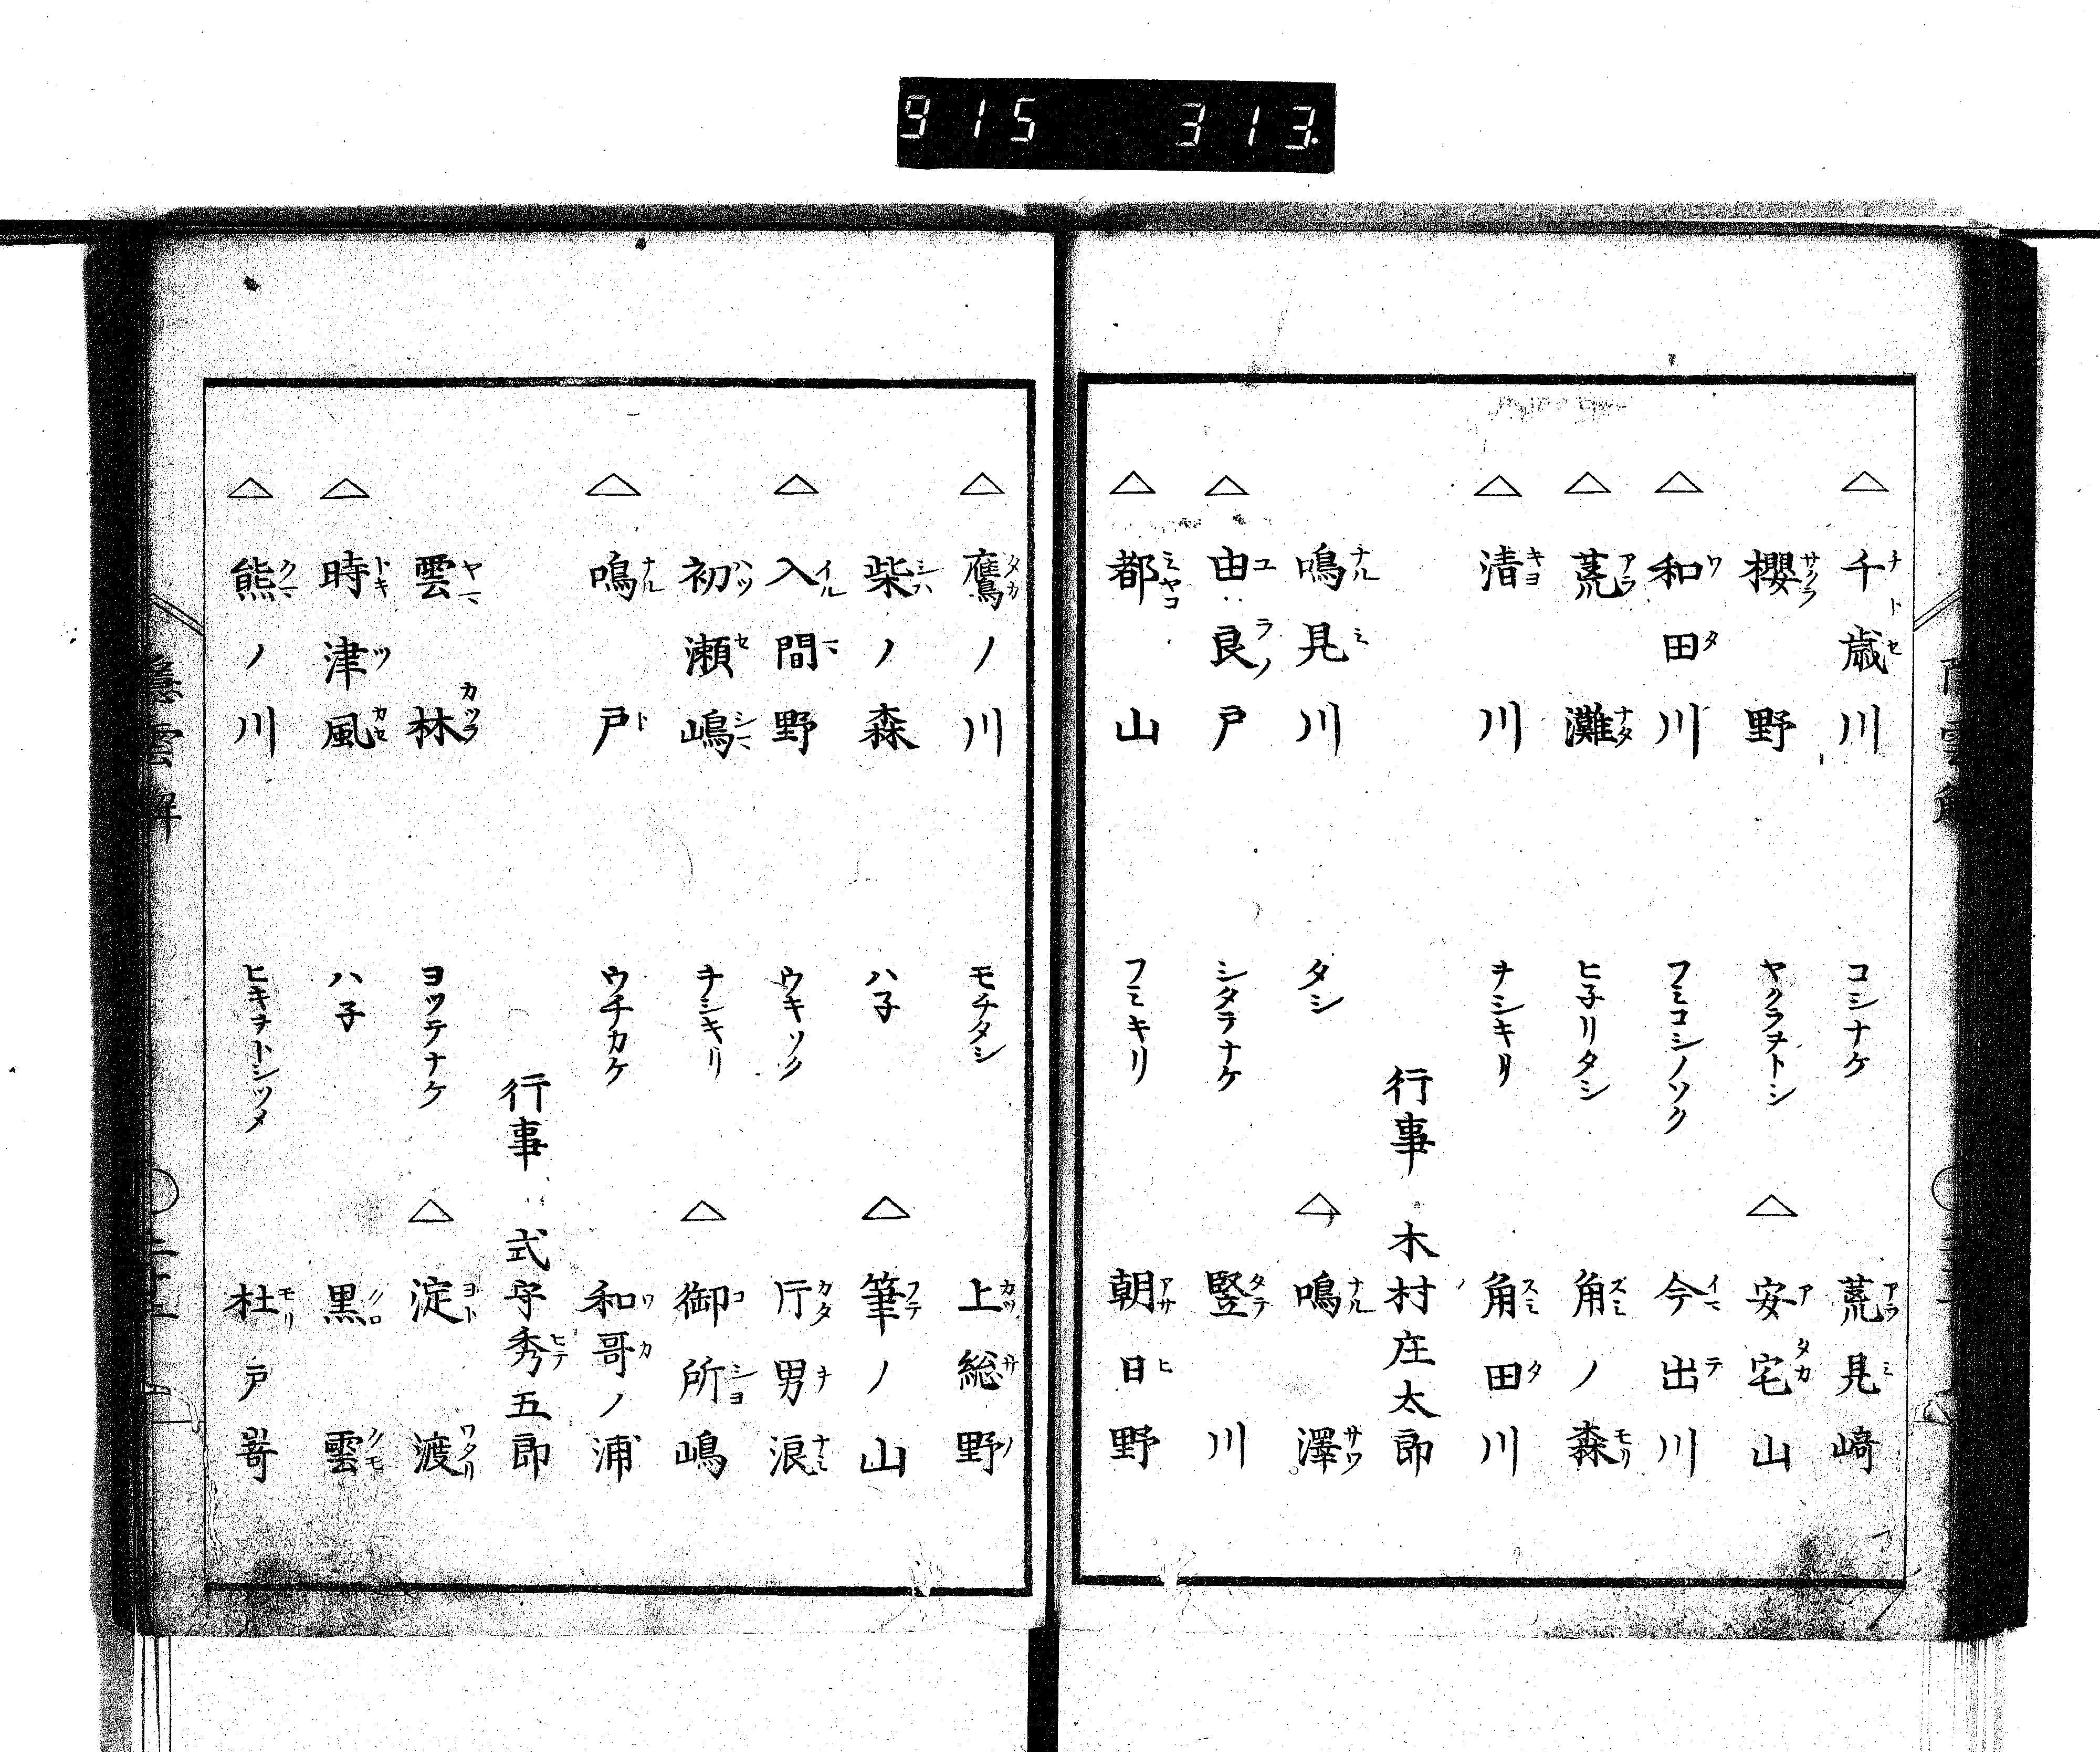 915 313.
△ 千歳川 コシナケ 荒見崎
櫻野 ヤクラヲトシ △ 安宅山
△ 和田川 フミコシノソク 今出川
△ 荒灘 ヒ子リタシ 角ノ森
△ 清川 ヲシキリ 角田川
行事 木村庄太郎
鳴見川 タシ △ 鳴澤
△ 由良戸 シタテナケ 竪川
△ 都山 フミキリ 朝日野
△ 鷹ノ川 モチタシ 上総野
柴ノ森 ハ子 △ 筆ノ山
△ 入間野 ウキソク 片男浪
初瀬嶋 ヲシキリ △ 御所嶋
△ 鳴戸 ウチカケ 和哥ノ浦
行事 式守秀五郎
雲林 ヨツテナケ △ 淀渡
△ 時津風 ハ子 黒雲
△ 熊ノ川 ヒキヲトシツメ 杜戸嵜